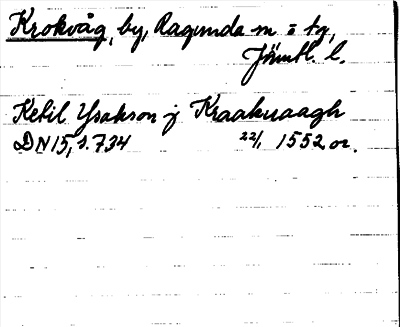 Krokvåg, by, Ragunda sn. o. tg,
Jämtl. l.
Ketil Ysakson j Kraakuaagh
DN 15, s. 734 22/1 1552 or.